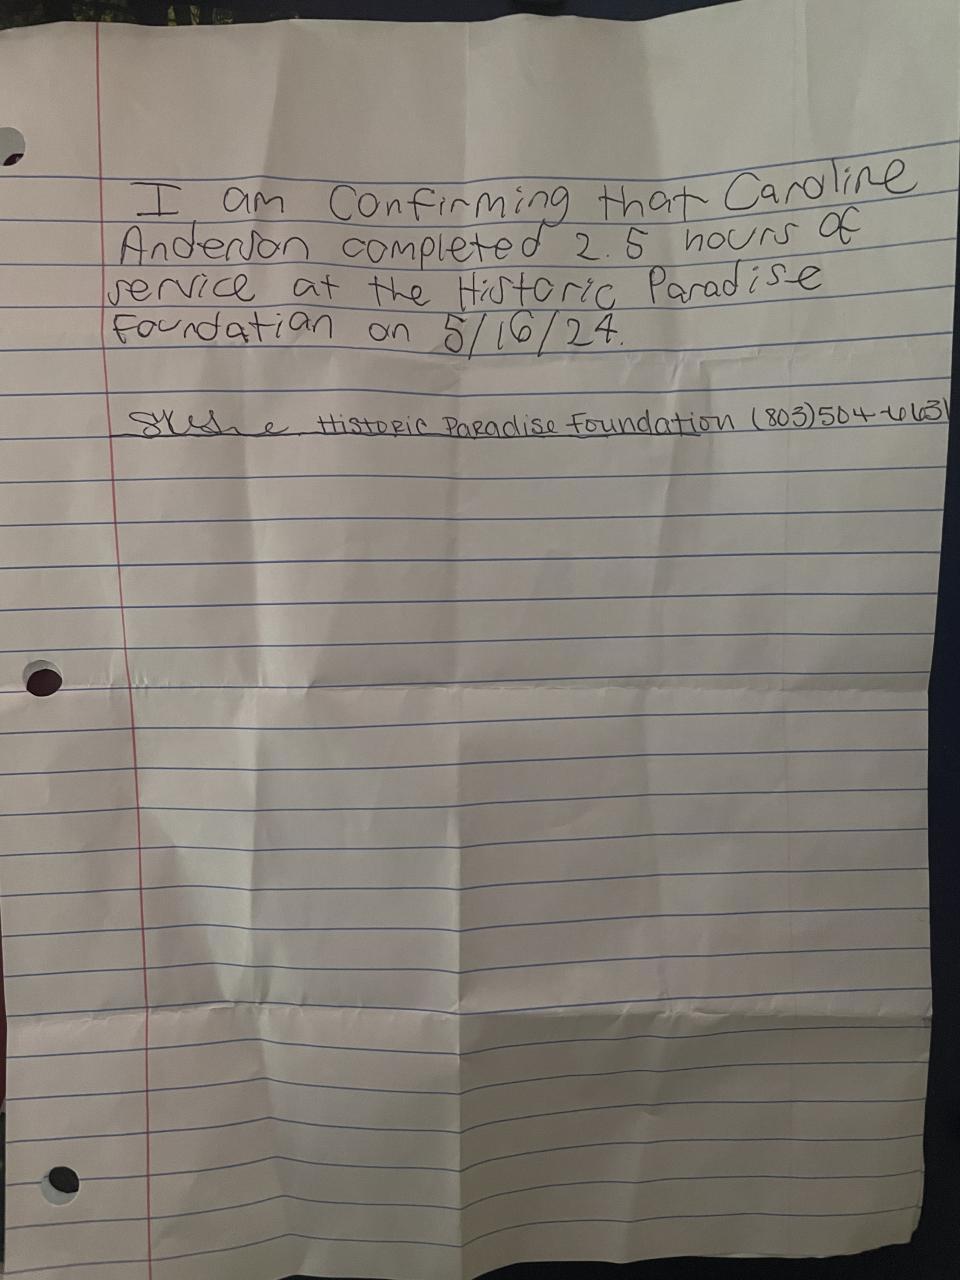 I am Confirming that Caroline
Anderson completed 2.5 hours of
service at the Historic Paradise
Foundation on 5/16/24.
Historic Paradise Foundation (803)504-6631